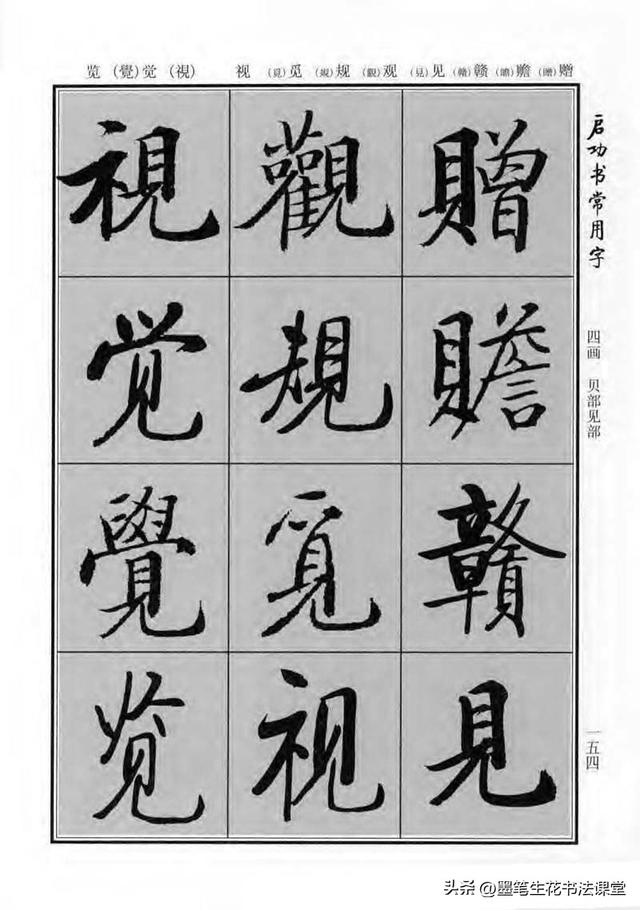 赠(贈)赡(贍)赣(贛)见(見)观(觀)规(規)觅(覓)视 (視)觉(覺)览
启功书常用字
四画 贝部见部
一五四
贈
贍
贛
見
觀
規
覓
视
視
觉
覺
览
头条 @墨笔生花书法课堂